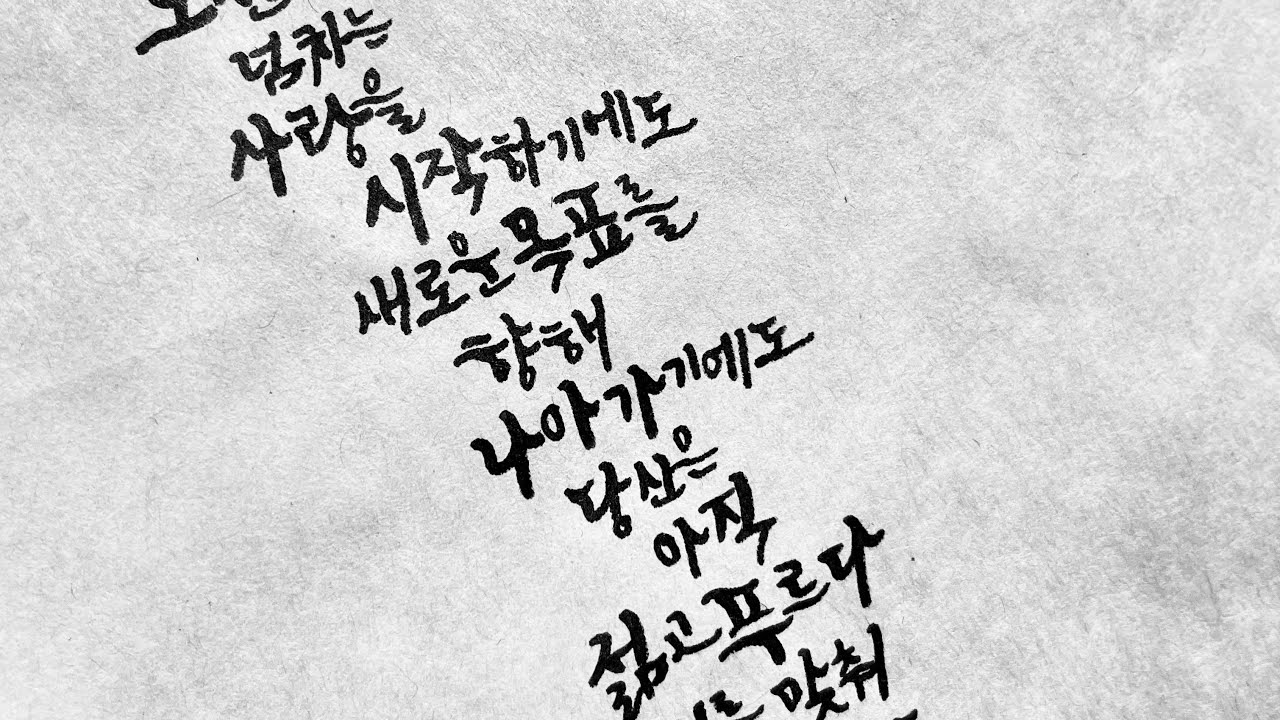 넘치는
사랑을
시작하기에도
새로운 목표를
향해
나아가기에도
당산은
아직
젊고 푸르다
맞춰